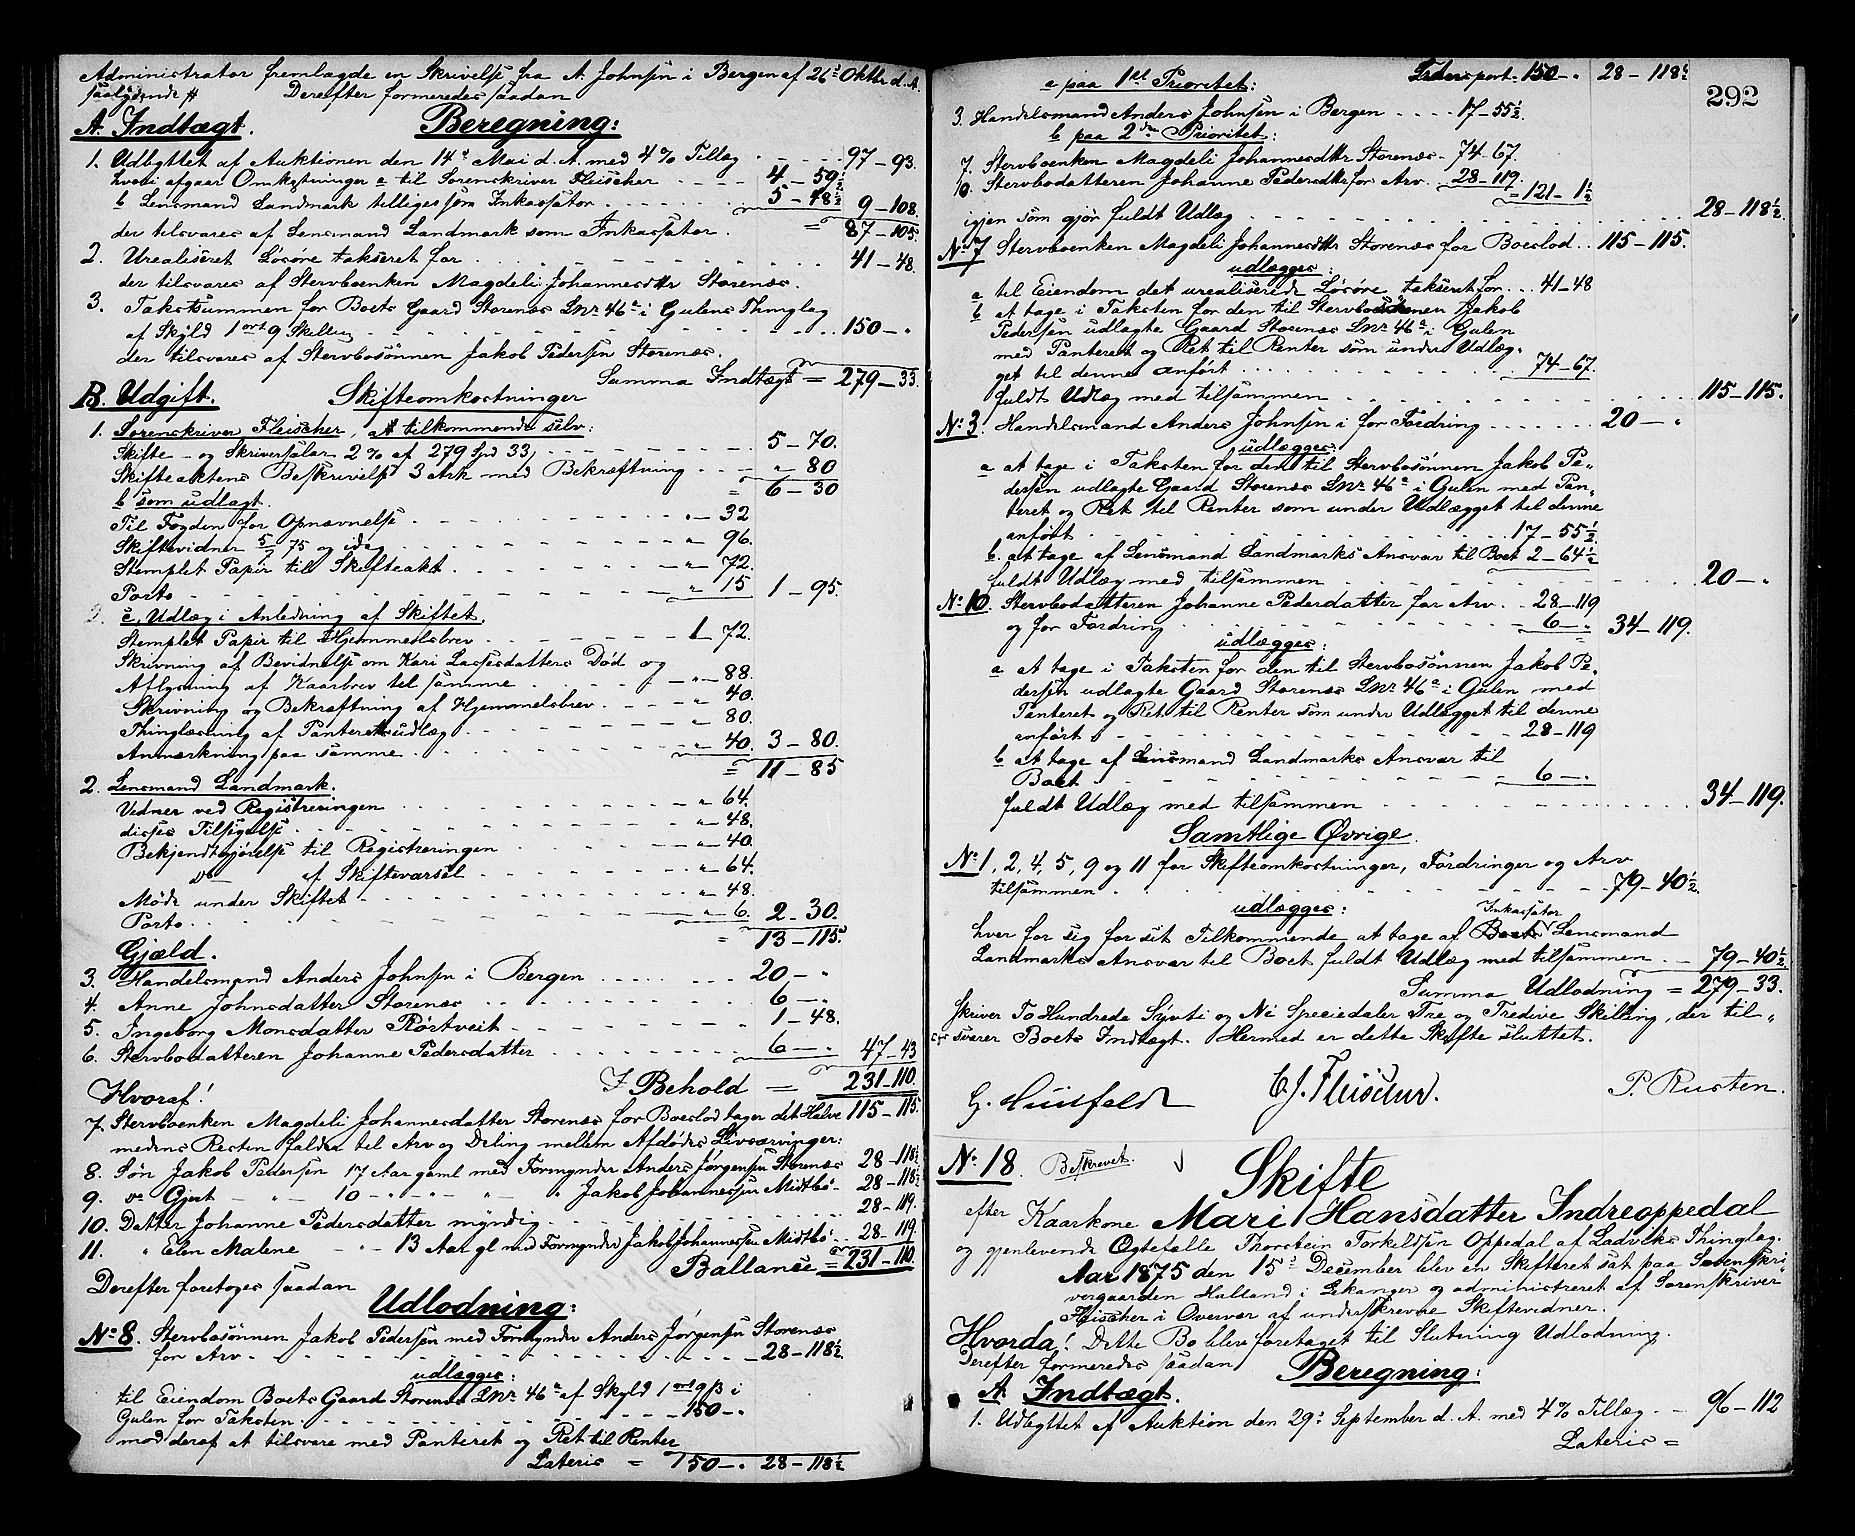 Administrator fremlagde en Skrivelse fra A. Johnsen i Bergen af 26de Oktbr d. A.
saalydende # Derefter formeredes saadan
Beregning:
A. Indtægt.
1. Udbyttet af Auktionen den 14de Mai d. A. med 4% Tillæg . . 97-93.
hvori afgaar Omkostninger a til Sorenskriver Fleischer . . 4-59½
b Lensmand Landmark tilligesom Inkassator . . 5-48½ 9-108.
der tilsvares af Lensmand Landmark som Inkassator . = 87-105.
2. Urealiseret Løsøre takseret for . . 41-48.
der tilsvares af Stervboenken Magdeli Johannesdtr Storenæs.
3. Takstsummen for Boets Gaard Storenæs LNr. 46a i Gulens Thinglag
af Skyld 1 ort 9 Skilling . . 150-"
der tilsvares af Stervbosønnen Jakob Pedersen Storenæs.
Summa Indtægt = 279-33.
B. Udgift. Skifteomkostninger
1. Sorenskriver Fleischer, a tilkommende selv:
Skifte- og Skriversalær 2% af 279 Spd 33, . . 5-70.
Skifteaktens Beskrivelse 3 Ark med Bekræftning . . "-80
= 6-30
b som udlagt.
Til Fogden for Opnævnelse . . "-32
Skiftevidner 5/7 75 og idag . . "-96.
Stemplet Papir til Skifteakt . . "-72.
Porto . . "-15 1-95.
c. Udlæg i Anledning af Skiftet.
Stemplet Papir til Hjemmelsbrev . . 1-72.
Skrivning af Bevidnelse om Kari Lassesdatters Død og
Aflysning af Kaarbrev til samme . . "-88.
Skrivning og Bekræftning af Hjemmelsbrev . . "-40.
Thinglæsning af Panteretsudlæg . . "-80.
Anmærkning paa samme . . "-40. 3-80.
= 11-85
2. Lensmand Landmark.
Vidner ved Registreringen . . "-64.
disses Tilsigelse . . "-48.
Bekjendtgjørelse til Registreringen . . "-40.
do af Skiftevarsel . . "-64.
Møde under Skiftet . . "-48.
Porto . . "-6. 2-30.
= 13-115.
Gjæld.
3. Handelsmand Anders Johnsen i Bergen . . 20-"
4. Anne Johnsdatter Storenæs . . 6-"
5. Ingeborg Monsdatter Rørtveit . . 1-48.
6. Stervbodatteren Johanne Pedersdatter . . 6-" 47-43
I Behold = 231-110.
Hvoraf!
7. Stervboenken Magdeli Johannesdatter Storenæs for Boeslod tager det Halve 115-115.
medens Resten falder til Arv og Deling mellem Afdødes Livsarvinger:
8. Søn Jakob Pedersen 17 Aar gaml med Formynder Anders Jørgensen Storenæs 28-118½
9. do Gjert - " - 10 - " - " - " " Jakob Johannessen Midtbø - 28-118½
10. Datter Johanne Pedersdatter myndig . . 28-119.
11. " Elen Malene - " - 13 Aar gl med Formynder Jakob Johannessen Midtbø . . 28-119.
Ballance = 231-110.
Derefter foretoges saadan
Udlodning:
No 8. Stervbosønnen Jakob Pedersen med Formynder Anders Jørgensen Storenæs
for Arv . . 28-118½
udlægges:
til Eiendom Boets Gaard Storenæs LNr. 46a af Skyld 1 ort 9 ß i
Gulen for Taksten . . 150-"
mod deraf at tilsvare med Panteret og Ret til Renter
Lateris = 150-" 28-118½
292
Transport 150-" 28-118½
a paa 1ste Prioritet:
3. Handelsmand Anders Johnsen i Bergen . . 17-55½
b paa 2den Prioritet:
7. Stervboenken Magdeli Johannesdtr Storenæs - 74-67.
10. Stervbodatteren Johanne Pedersdtr for Arv . 28-119. = 121-1½
igjen som gjør fuldt Udlæg . . 28-118½.
No 7 Stervboenken Magdeli Johannesdtr Storenæs for Boeslod . . 115-115.
udlægges:
a til Eiendom det urealiserede Løsøre takseret for . . 41-48
b at tage i Taksten for den til Stervbosønnen Jakob
Pedersen udlagte Gaard Storenæs LNr. 46a i Gulen
med Panteret og Ret til Renter som under Udlæg-
get til denne anført . . 74-67.
fuldt Udlæg med tilsammen . . 115-115.
No 3. Handelsmand Anders Johnsen i for Fordring . . 20-"
udlægges:
a at tage i Taksten for den til Stervbosønnen Jakob Pe-
dersen udlagte Gaard Storenæs LNr. 46a i Gulen med Pan-
teret og Ret til Renter som under Udlægget til denne
anført . . 17-55½.
b. at tage af Lensmand Landmarks Ansvar til Boet 2-64½
fuldt Udlæg med tilsammen . . 20-"
No 10. Stervbodatteren Johanne Pedersdatter for Arv . . 28-119
og for Fordring . . = 6-" 34-119.
udlægges:
a at tage i Taksten for den til Stervbosønnen Jakob Pe-
dersen udlagte Gaard Storenæs LNr. 46a i Gulen med
Panteret og Ret til Renter som under Udlægget til denne
anført . . 28-119
b at tage af Lensmand Landmarks Ansvar til
Boet . . 6-"
fuldt Udlæg med tilsammen . . 34-119.
Samtlige Øvrige.
No 1, 2, 4, 5, 9 og 11 for Skifteomkostninger, Fordringer og Arv
tilsammen . . 79-40½
udlægges:
hver for sig for sit Tilkommende at tage af Inkassator Lensmand
Landmarks Ansvar til Boet fuldt Udlæg med tilsammen . . 79-40½
Summa Udlodning = 279-33.
skriver To Hundrede Sytti og Ni Speciedaler Tre og Tredive Skilling, der til-
svarer Boets Indtægt. Hermed er dette Skifte sluttet.
G. Huitfeldt C. J. Fleischer. P. Rusten.
No 18. Beskrevet. Skifte
efter Kaarkone Mari Hansdatter Indreoppedal
og gjenlevende Ægtefælle Thorstein Torkildsen Oppedal af Ladviks Thinglag.
Aar 1875 den 15de December blev en Skifteret sat paa Sorenskri-
vergaarden Halland i Lekanger og administreret af Sorenskriver
Fleischer i Overvær af underskrevne Skiftevidner.
Hvorda! Dette Bo blev foretaget til Slutering Udlodning.
Derefter formeredes saadan
Beregning:
A. Indtægt.
1. Udbyttet af Auktion den 29de September d. A. med 4% Tillæg . - 96-112
Lateris =